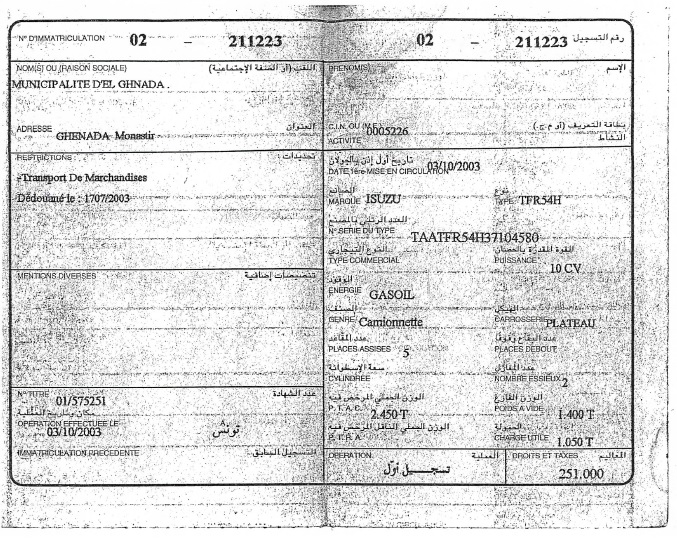 N° D'IMMATRICULATION 02 - 211223
NOM(S) OU (RAISON SOCIALE) اللقب (أو الصفة الإجتماعية)
MUNICIPALITE D'EL GHNADA .
ADRESSE العنوان
GHENADA Monastir
RESTRICTIONS : تحديدات :
-Transport De Marchandises
Dédouané le : 1707/2003
MENTIONS DIVERSES تنصيصات إضافية
N° TITRE عدد الشهادة
01/575251
مكان وتاريخ العملية
OPERATION EFFECTUEE LE
03/10/2003 تونس
IMMATRICULATION PRECEDENTE التسجيل السابق
02 - 211223 رقم التسجيل
PRENOM(S) الإسم
C.I.N. OU (M.F.) 0005226 بطاقة التعريف (أو م.ج.)
ACTIVITE النشاط
تاريخ أول إذن بالجولان
DATE 1ère MISE EN CIRCULATION 03/10/2003
الصانع نوع
MARQUE ISUZU TYPE TFR54H
العدد الرتبي بالمصنع
N° SERIE DU TYPE TAATFR54H37104580
النوع التجاري القوة المقدرة بالحصان
TYPE COMMERCIAL PUISSANCE 10 CV
الوقود
ENERGIE GASOIL
الصنف الهيكل
GENRE Camionnette CARROSSERIE PLATEAU
عدد المقاعد عدد البقاع وقوفا
PLACES ASSISES 5 PLACES DEBOUT
سعة الإسطوانة عدد المغازل
CYLINDREE NOMBRE ESSIEUX 2
الوزن الجملي المرخص فيه الوزن الفارغ
P. T. A. C. 2.450 T POIDS A VIDE 1.400 T
الوزن الجملي الناقل المرخص فيه الحمولة
P. T. R. A. CHARGE UTILE 1.050 T
OPERATION العملية DROITS ET TAXES المعاليم
تسجيل أول 251,000